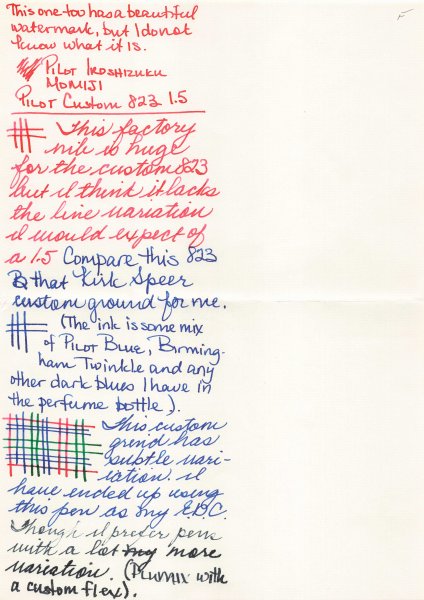 This one too has a beautiful
watermark, but I do not
know what it is.
Pilot Iroshizuku
Momiji
Pilot Custom 823 1.5
This factory
nib is huge
for the custom 823
but I think it lacks
the line variation
I would expect of
a 1.5 Compare this 823
to that Kirk Speer
custom ground for me.
(The ink is some mix
of Pilot Blue, Birming-
ham Twinkle and any
other dark blues I have in
the perfume bottle).
This custom
grind has
subtle vari-
iation. I
have ended up using
this pen as my E.D.C.
Though I prefer pens
with a lot my more
variation. (Plumix with
a custom flex).
F